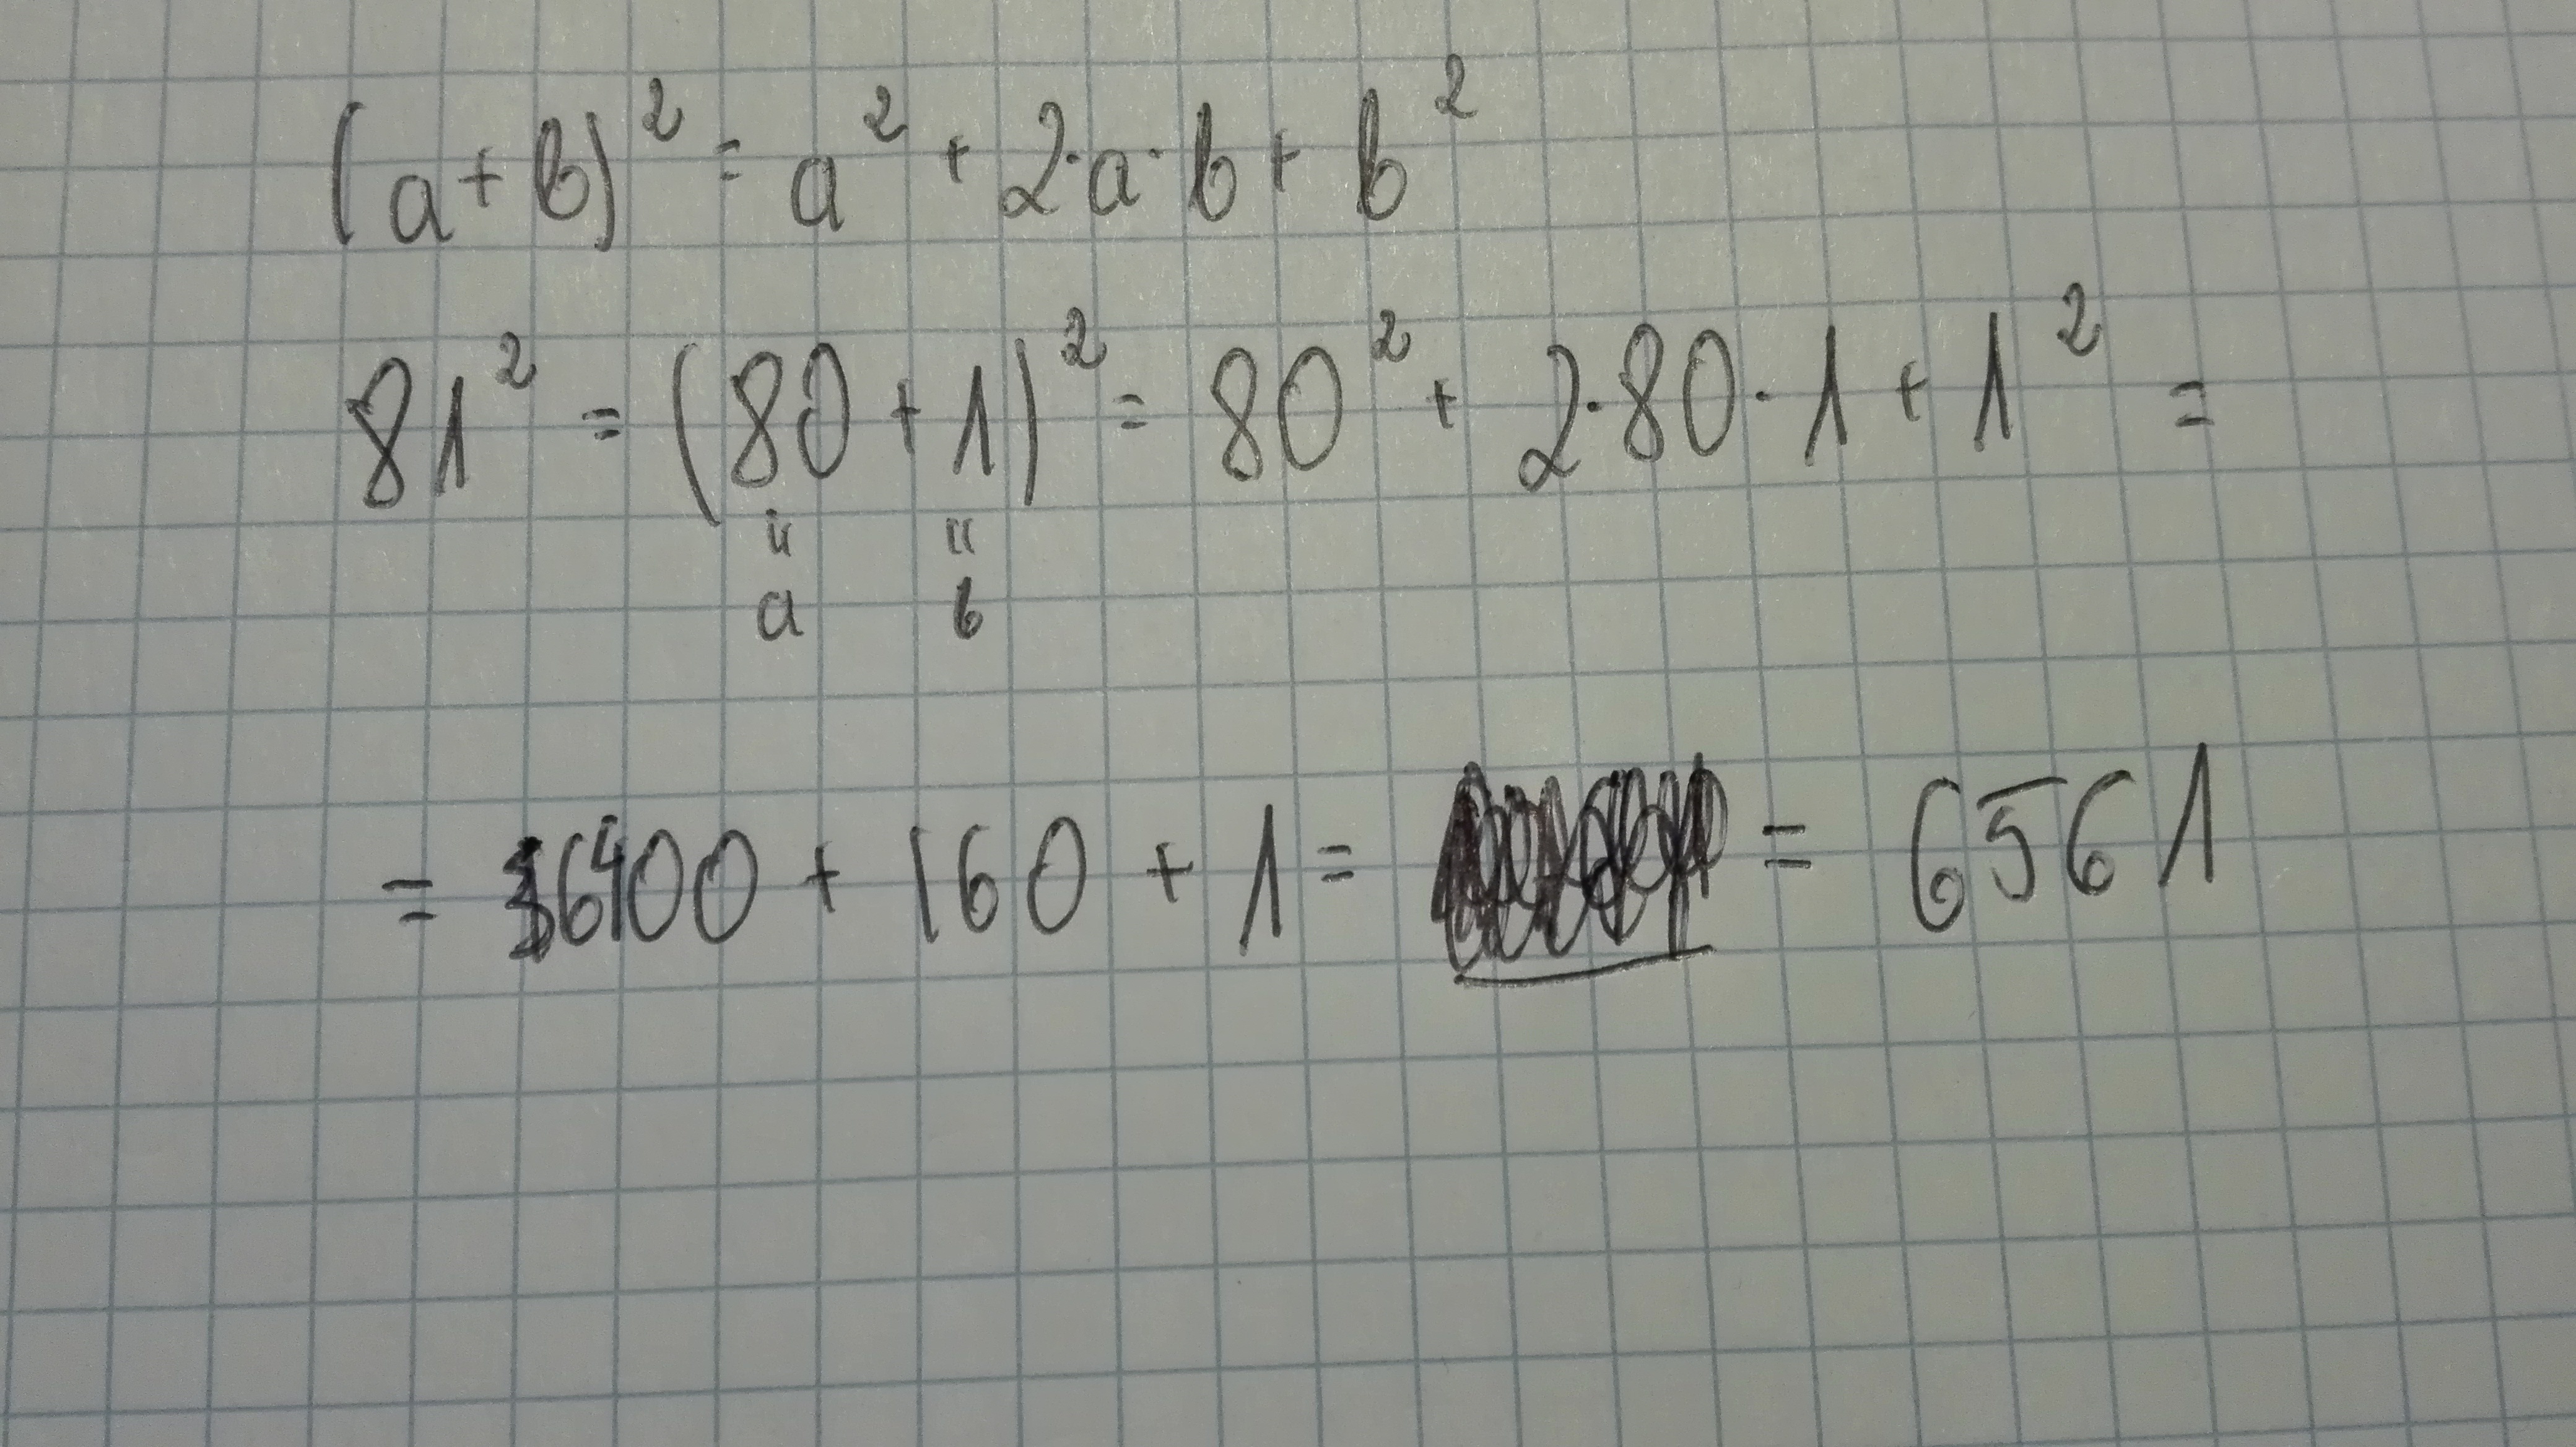 (a+b)² = a² + 2·a·b + b²
81² = (80+1)² = 80² + 2·80·1 + 1² =
" "
a b
= 6400 + 160 + 1 = = 6561